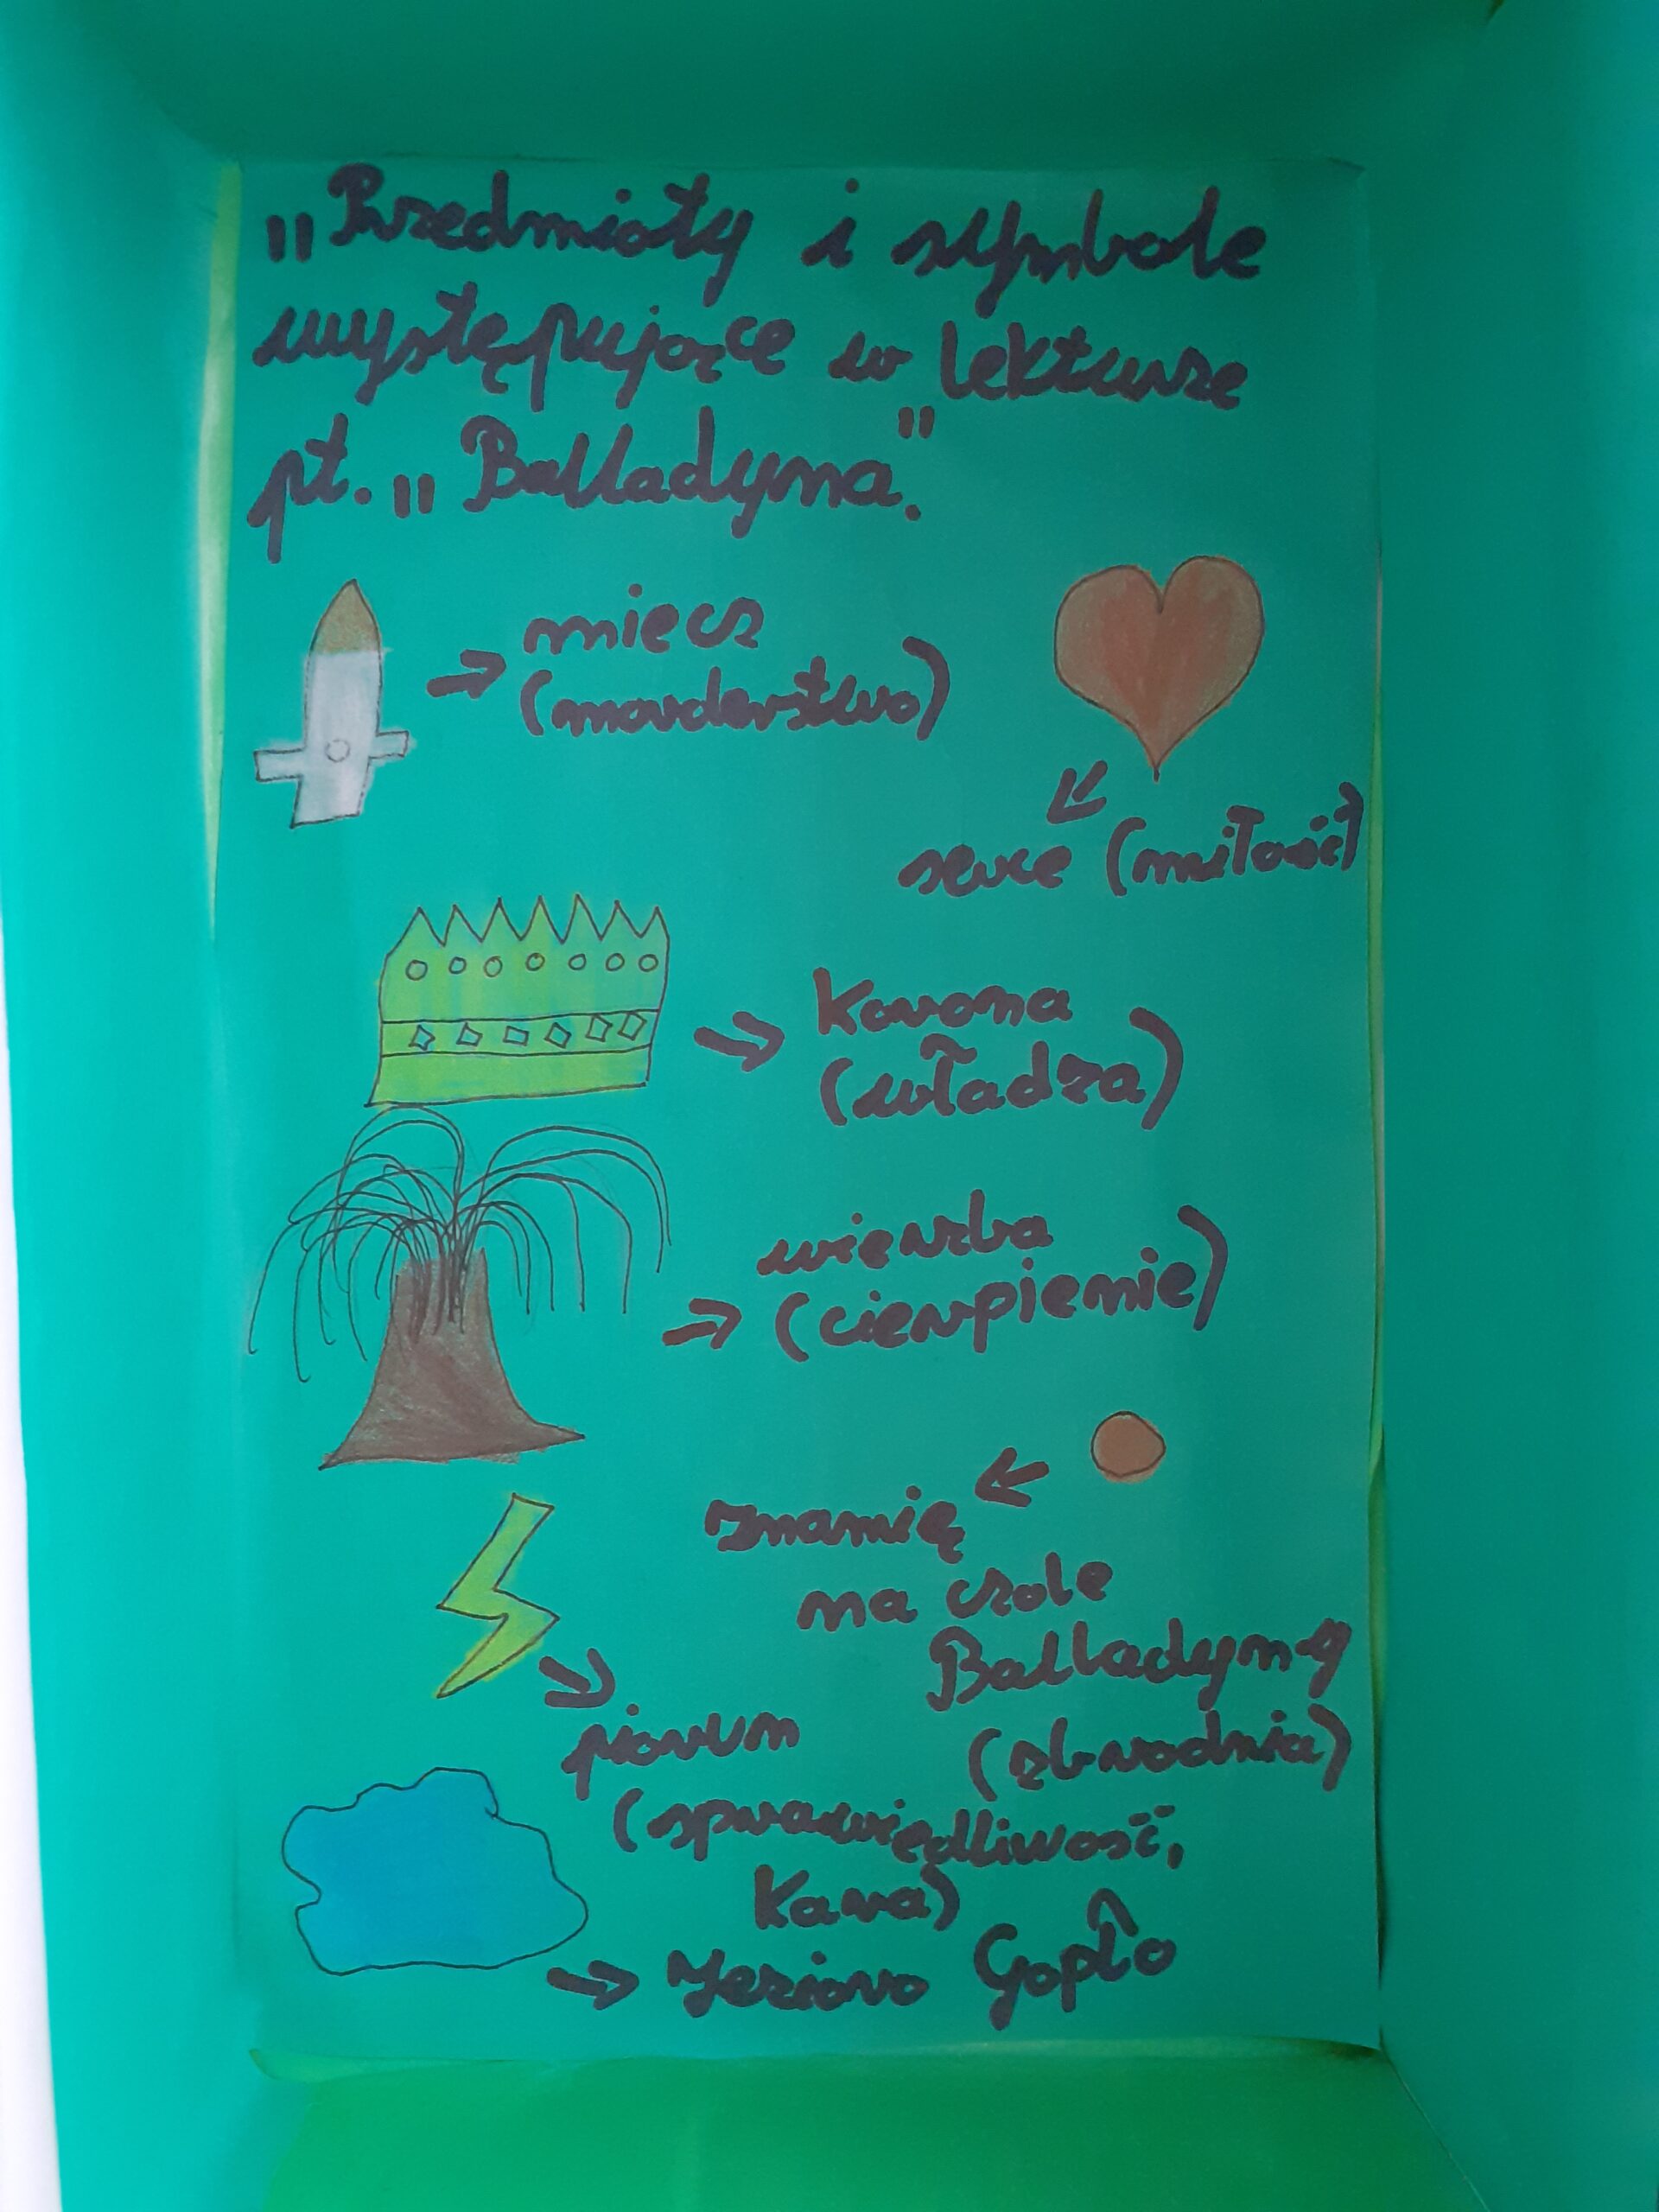 „Przedmioty i symbole
występujące w lekturze
pt. „Balladyna”.
miecz
(morderstwo)
serce (miłość)
Korona
(władza)
wierzba
(cierpienie)
znamię
na czole
Balladyny
(zbrodnia)
piorun
(sprawiedliwość,
Kara)
Jezioro Gopło